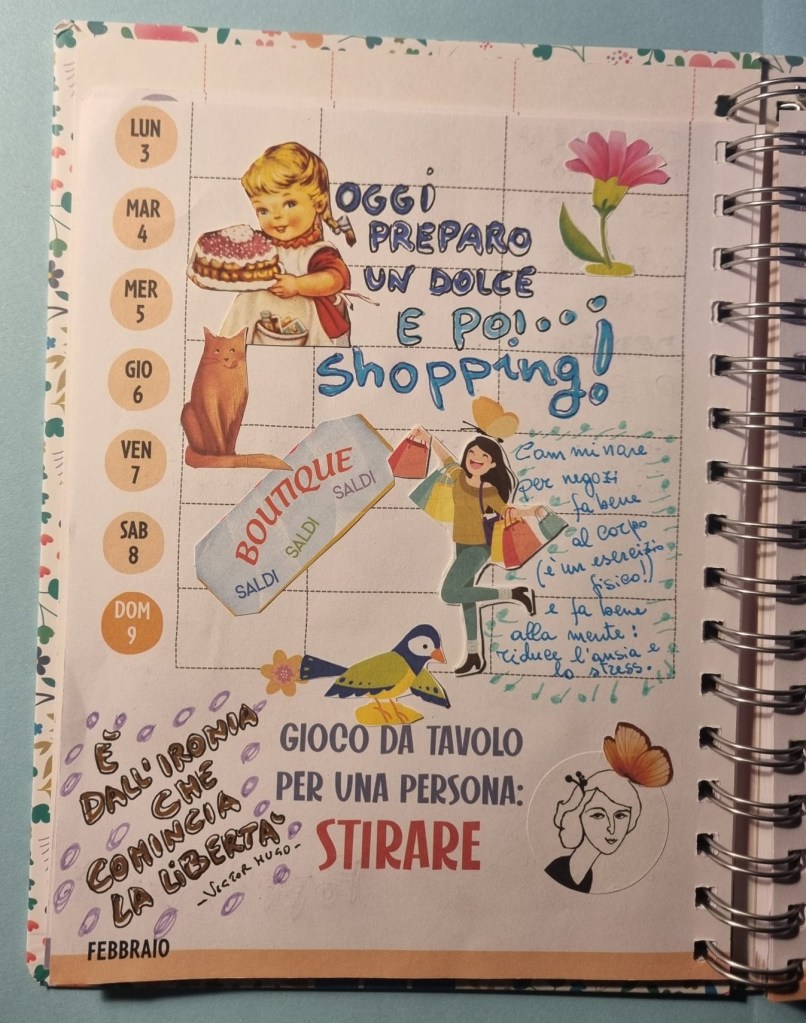 LUN
3
MAR
4
MER
5
GIO
6
VEN
7
SAB
8
DOM
9
OGGI
PREPARO
UN DOLCE
E POI...
Shopping!
BOUTIQUE
SALDI
SALDI
SALDI
Camminare
per negozi
fa bene
al corpo
(è un esercizio
fisico!)
e fa bene
alla mente:
riduce l'ansia e
lo stress.
È
DALL'IRONIA
CHE
COMINCIA
LA LIBERTA'
- VICTOR HUGO -
GIOCO DA TAVOLO
PER UNA PERSONA:
STIRARE
FEBBRAIO